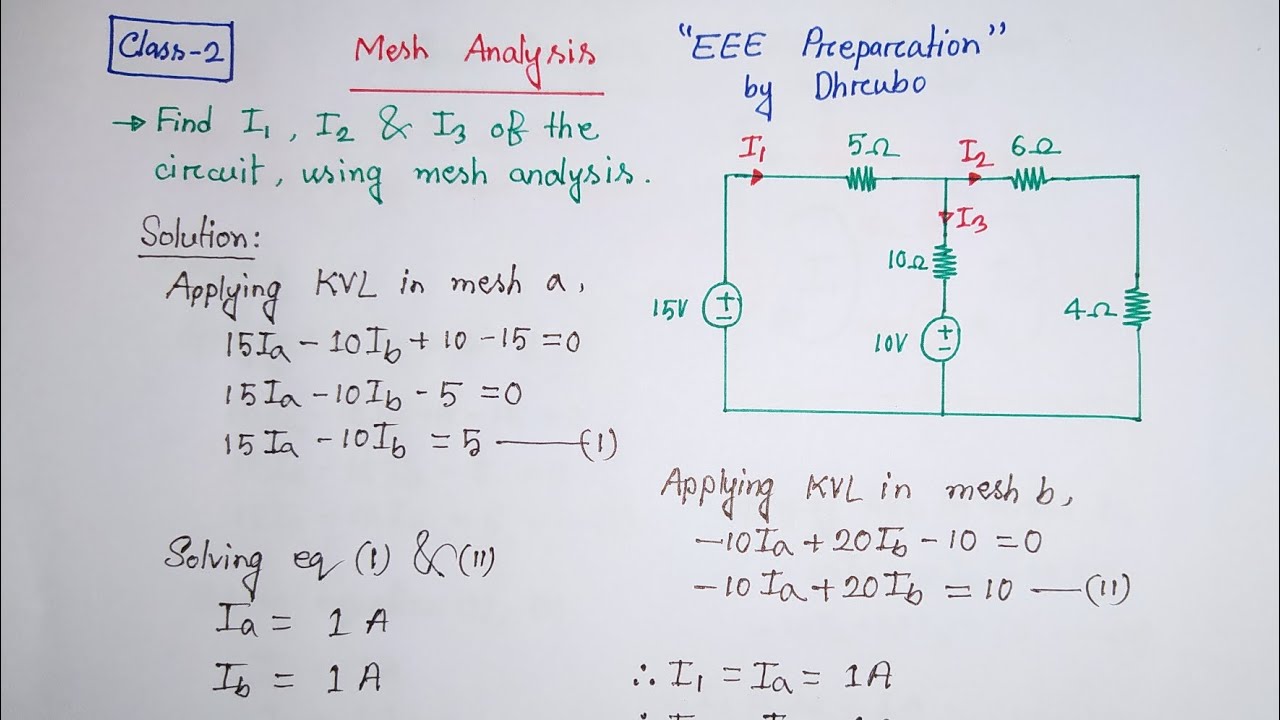 Class-2
Mesh Analysis
"EEE Preparcation"
by Dhrcubo
→ Find I₁, I₂ & I₃ of the
circuit, using mesh analysis.
Solution:
Applying KVL in mesh a,
15Ia - 10Ib + 10 - 15 = 0
15Ia - 10Ib - 5 = 0
15Ia - 10Ib = 5 —(I)
I₁
5Ω
I₂
6Ω
I₃
10Ω
15V
+
-
10V
+
-
4Ω
Applying KVL in mesh b,
-10Ia + 20Ib - 10 = 0
-10Ia + 20Ib = 10 —(II)
Solving eq (I) & (II)
Ia = 1 A
Ib = 1 A
∴ I₁ = Ia = 1A